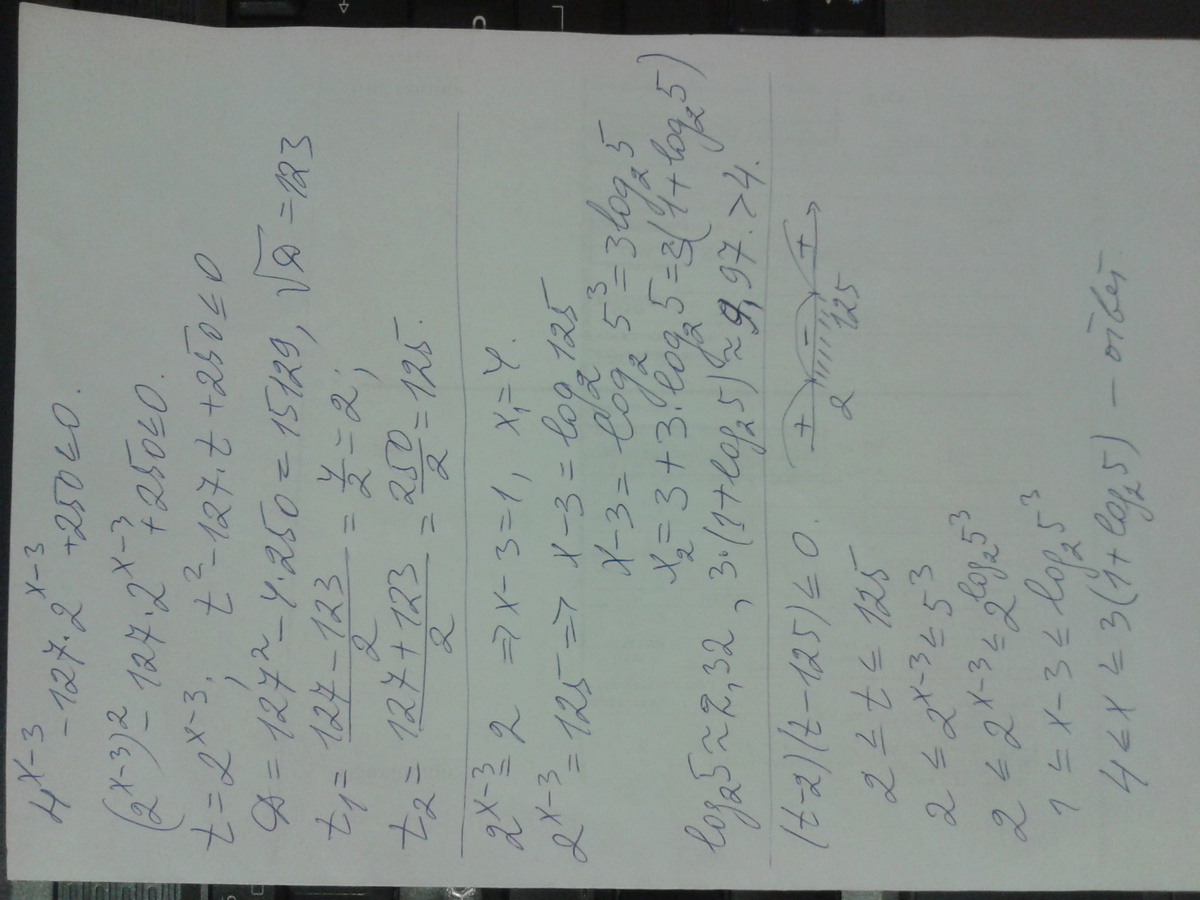 4^{x-3} - 127·2^{x-3} + 250 ≤ 0.
(2^{x-3})^2 - 127·2^{x-3} + 250 ≤ 0.
t = 2^{x-3}, t^2 - 127·t + 250 ≤ 0
D = 127^2 - 4·250 = 15129, √D = 123
t_1 = \frac{127-123}{2} = \frac{4}{2} = 2;
t_2 = \frac{127+123}{2} = \frac{250}{2} = 125.
2^{x-3} = 2 ⇒ x-3 = 1, x_1 = 4.
2^{x-3} = 125 ⇒ x-3 = log_2 125
x-3 = log_2 5^3 = 3log_2 5
x_2 = 3 + 3·log_2 5 = 3(1+log_2 5)
log_2 5 ≈ 2,32, 3·(1+log_2 5) ≈ 9,97. > 4.
(t-2)(t-125) ≤ 0. + - +
2 125
2 ≤ t ≤ 125
2 ≤ 2^{x-3} ≤ 5^3
2 ≤ 2^{x-3} ≤ 2^{log_2 5^3}
1 ≤ x-3 ≤ log_2 5^3
4 ≤ x ≤ 3(1+log_2 5) - ответ